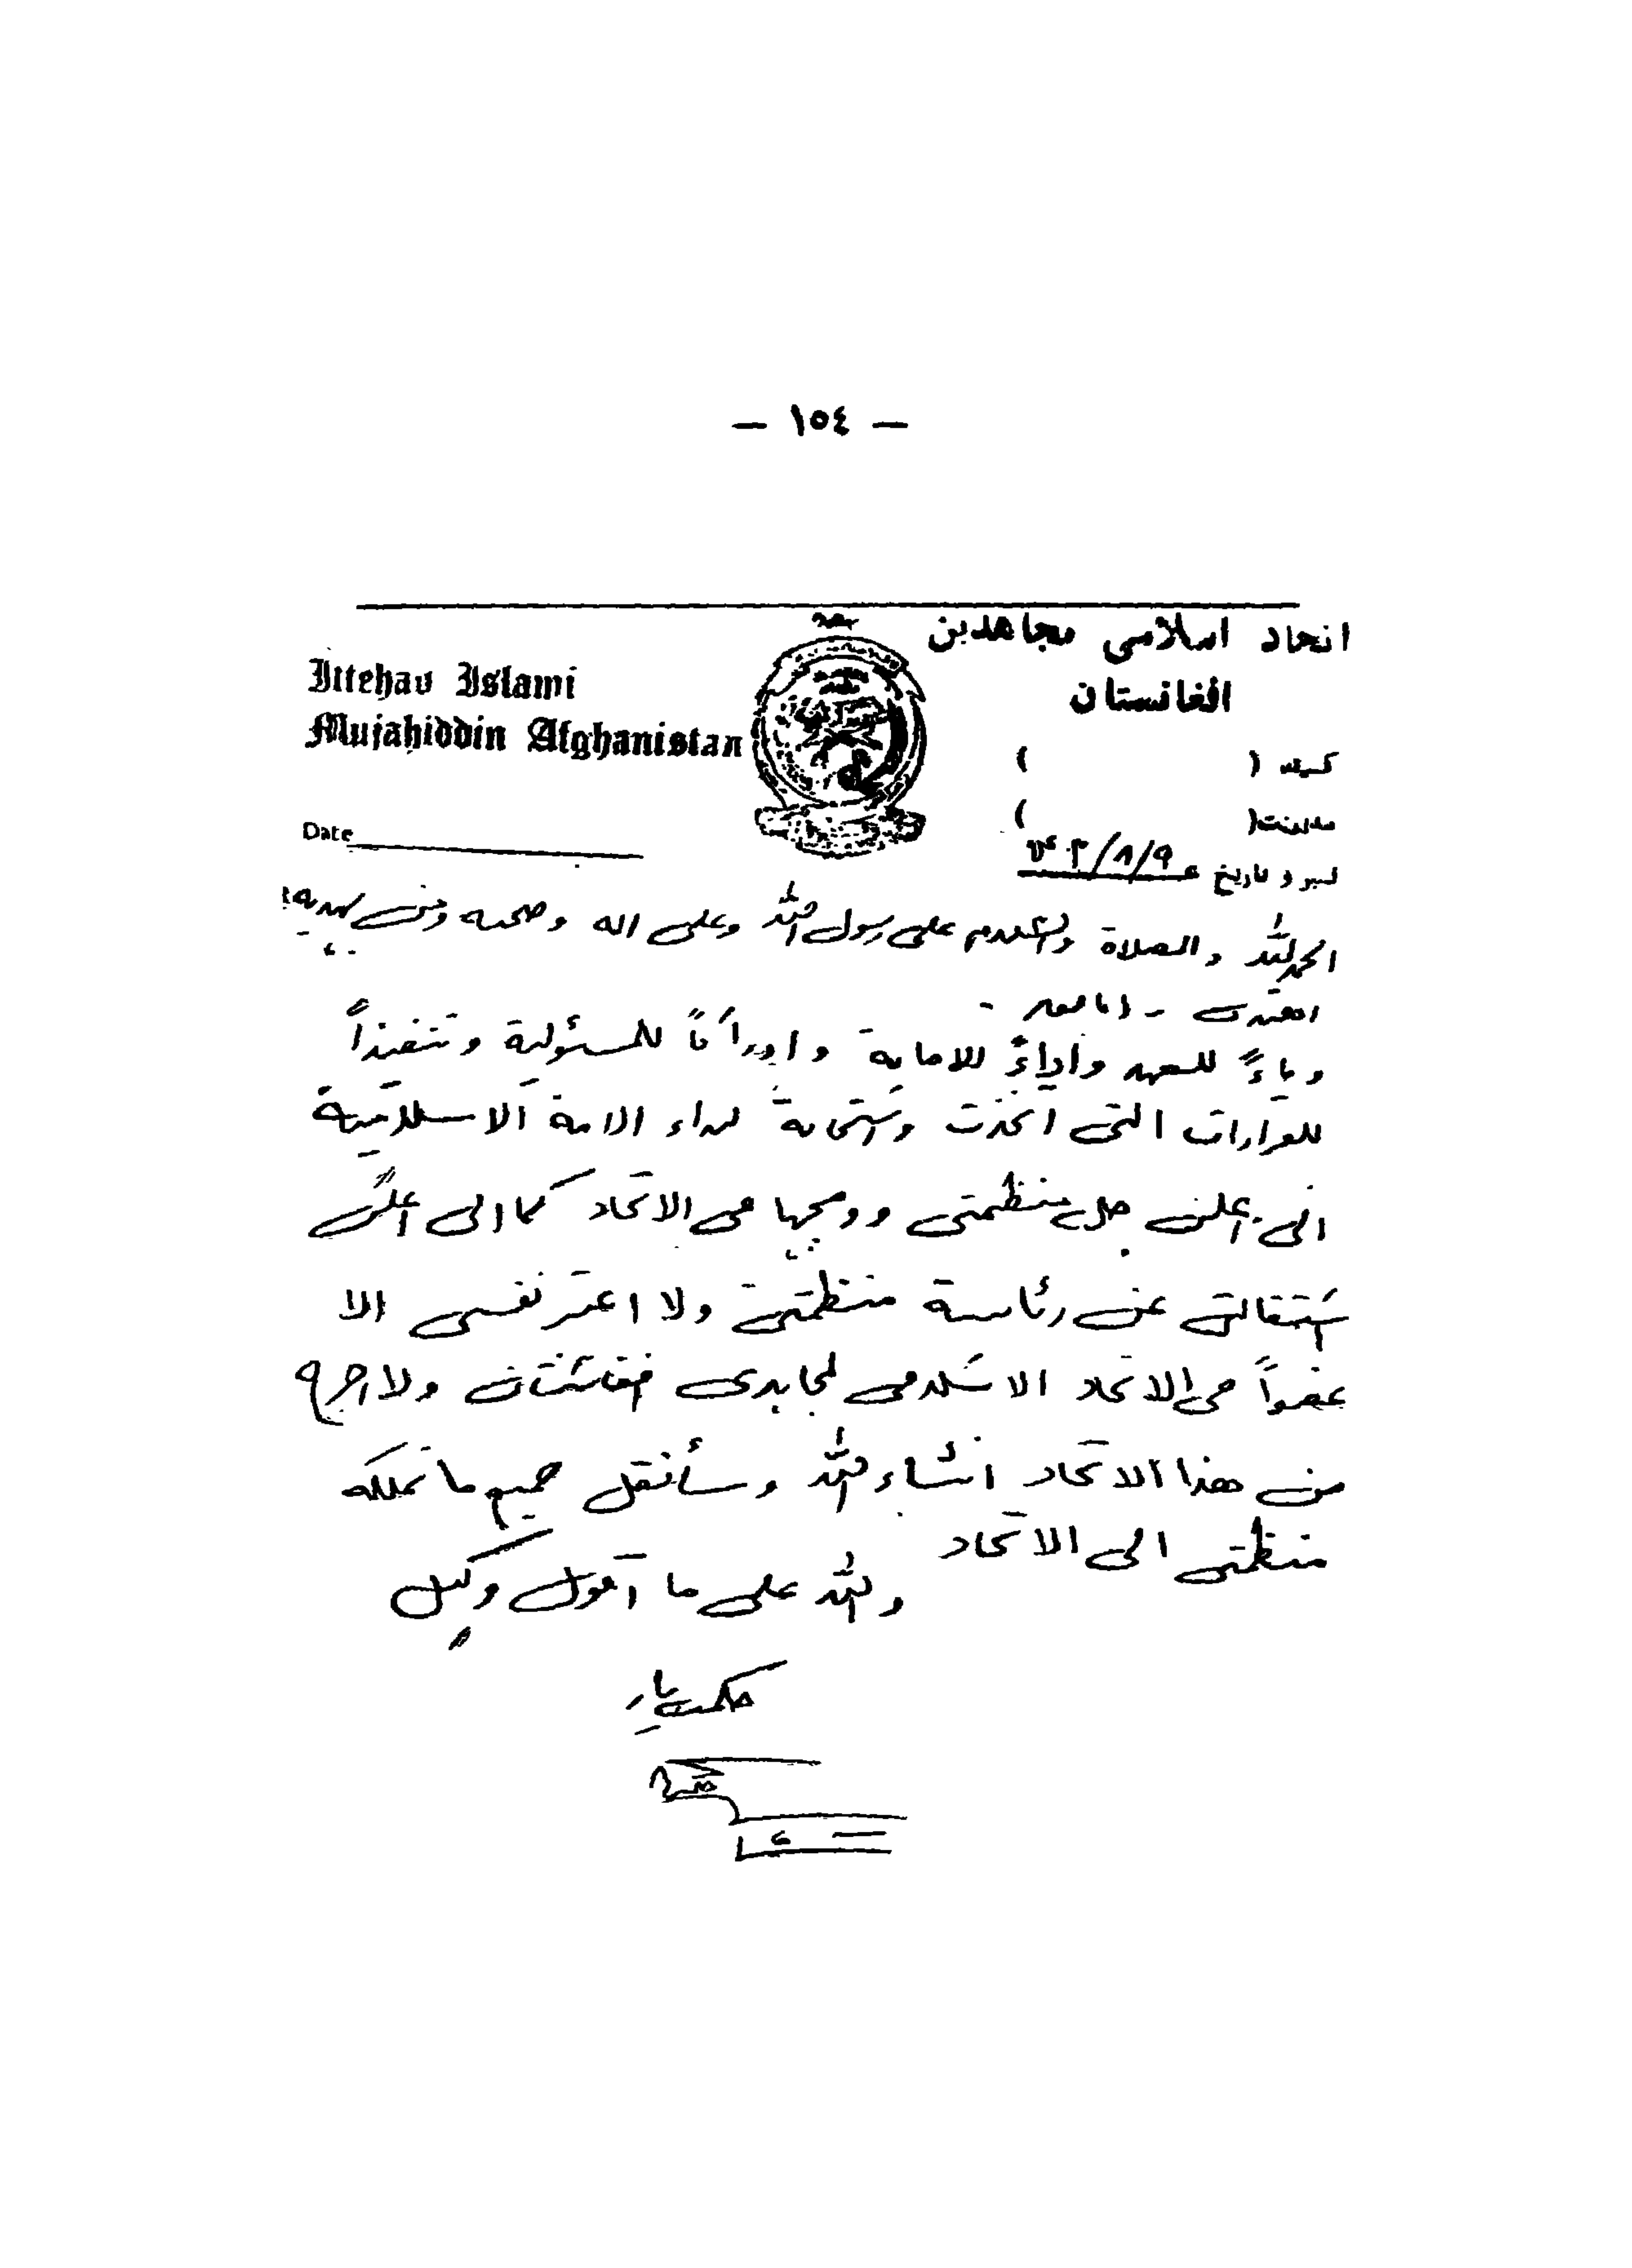 — ١٥٤ —
اتحاد اسلامي مجاهدين
افغانستان
Ittehad Islami
Mujahiddin Afghanistan
كميته ( )
مديريت( )
Date
نمبر و تاريخ ٩/٨/
الحمد لله والصلاة والسلام على رسول الله وعلى اله وصحبه ومن بهديه
اهتدى - اما بعد -
وفاءً للعهد واداءً للامانة وادراكاً للمسئولية وتنفيذاً
للقرارات التى اتخذت واستجابة لنداء الامة الاسلامية
انى اعلن حل منظمتى ودمجها فى الاتحاد كما انى اعلن
استقالتى عن رئاسة منظمتى ولا اعتبر نفسى الا
عضواً فى الاتحاد الاسلامى لمجاهدى افغانستان ولا اخرج
من هذا الاتحاد انشاء الله وسأنقل جميع ما تملكه
منظمتى الى الاتحاد
والله على ما اقول وكيل
حكمتيار